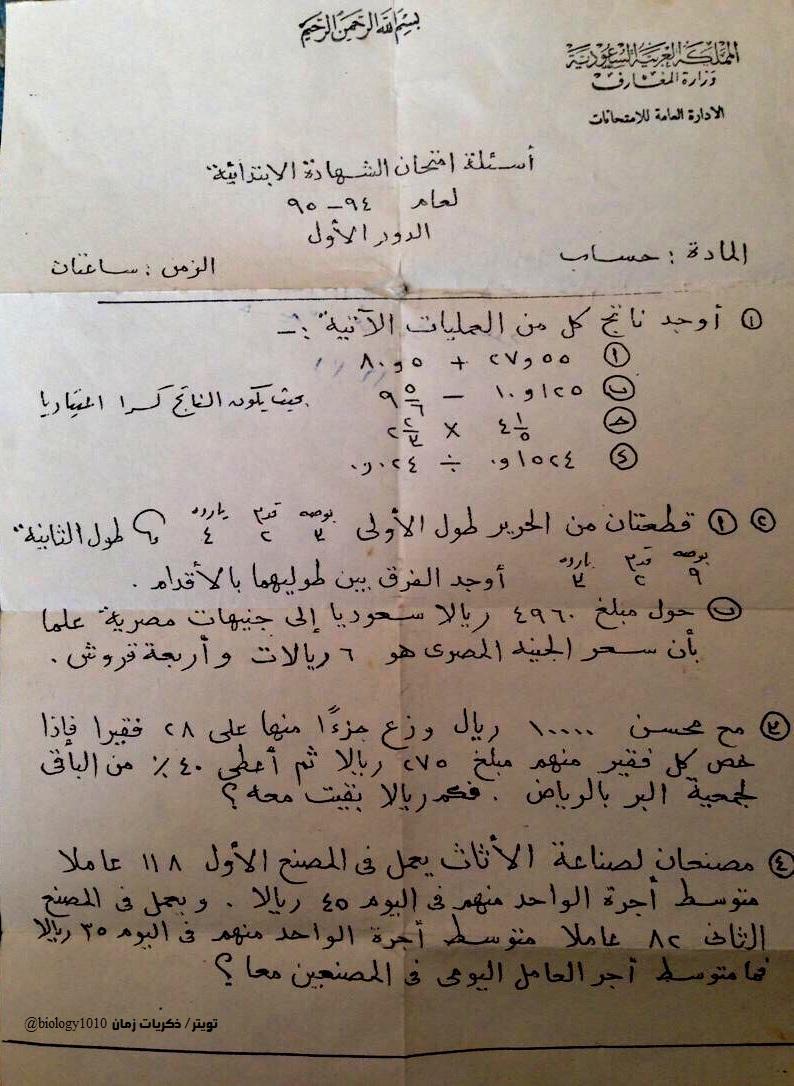 بسم الله الرحمن الرحيم
المملكة العربية السعودية
وزارة المعارف
الادارة العامة للامتحانات
أسئلة امتحان الشهادة الابتدائية
لعام ٩٤ – ٩٥
الدور الأول
المادة : حساب الزمن : ساعتان
١ أوجد ناتج كل من العمليات الآتية :-
أ ٥٥و٢٧ + ٥و٨٠
ب ١٢٥و١٠ – ٩ ٥/٦ بحيث يكون الناتج كسرا اعتياديا
ج ٤ ١/٥ × ٢ ٢/٣
د ١٥٢٤و٠ ÷ ٠٢٤و٠
٢ أ قطعتان من الحرير طول الأولى ٣ بوصه ٢ قدم ٤ يارده و طول الثانية
٩ بوصه ٢ قدم ٣ يارده أوجد الفرق بين طوليهما بالأقدام .
ب حول مبلغ ٤٩٦٠ ريالا سعوديا إلى جنيهات مصرية علما
بأن سعر الجنيه المصرى هو ٦ ريالات وأربعة قروش .
٣ مع محسن ١٠٠٠٠ ريال وزع جزءًا منها على ٢٨ فقيرا فإذا
خص كل فقير منهم مبلغ ٢٧٥ ريالا ثم أعطى ٤٠٪ من الباقى
لجمعية البر بالرياض . فكم ريالا بقيت معه ؟
٤ مصنعان لصناعة الأثاث يعمل فى المصنع الأول ١١٨ عاملا
متوسط أجرة الواحد منهم فى اليوم ٤٥ ريالا . ويعمل فى المصنع
الثانى ٨٢ عاملا متوسط أجرة الواحد منهم فى اليوم ٣٥ ريالا
فما متوسط أجر العامل اليومى فى المصنعين معا ؟
تويتر/ ذكريات زمان @biology1010